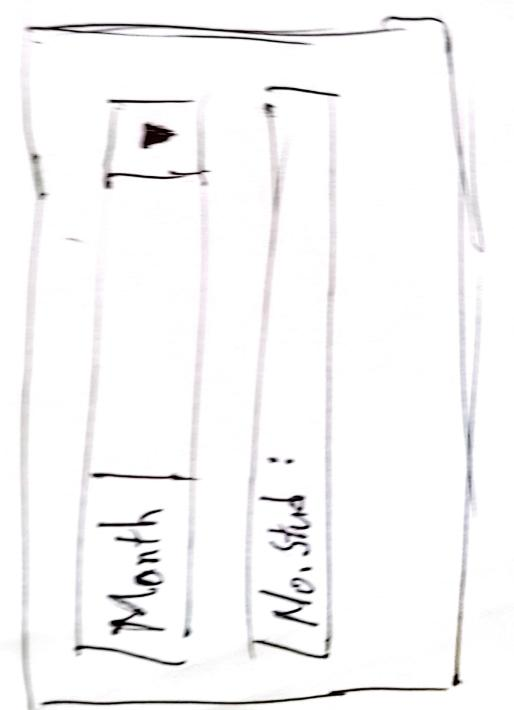 Month
No. Stud :